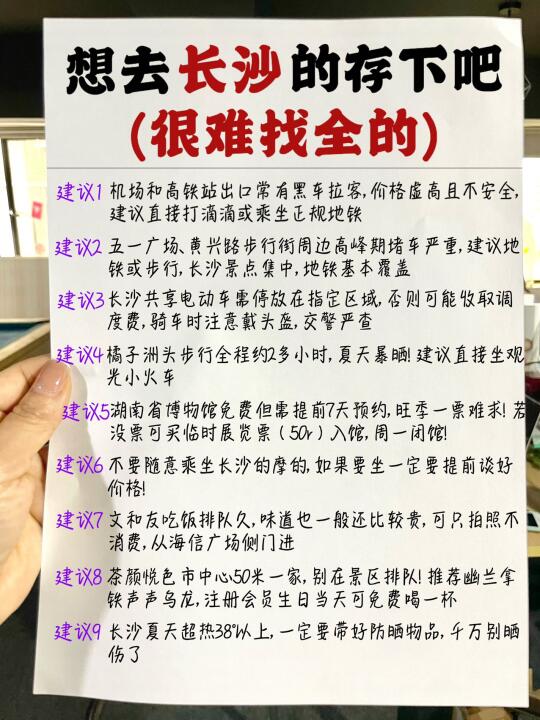 想去长沙的存下吧
(很难找全的)
建议1 机场和高铁站出口常有黑车拉客,价格虚高且不安全,
建议直接打滴滴或乘坐正规地铁
建议2 五一广场、黄兴路步行街周边高峰期堵车严重,建议地
铁或步行,长沙景点集中,地铁基本覆盖
建议3 长沙共享电动车需停放在指定区域,否则可能收取调
度费,骑车时注意戴头盔,交警严查
建议4 橘子洲头步行全程约2多小时,夏天暴晒!建议直接坐观
光小火车
建议5 湖南省博物馆免费但需提前7天预约,旺季一票难求!若
没票可买临时展览票(50r)入馆,周一闭馆!
建议6 不要随意乘坐长沙的摩的,如果要坐一定要提前谈好
价格!
建议7 文和友吃饭排队久,味道也一般还比较贵,可只拍照不
消费,从海信广场侧门进
建议8 茶颜悦色市中心50米一家,别在景区排队!推荐幽兰拿
铁声声乌龙,注册会员生日当天可免费喝一杯
建议9 长沙夏天超热38°以上,一定要带好防晒物品,千万别晒
伤了